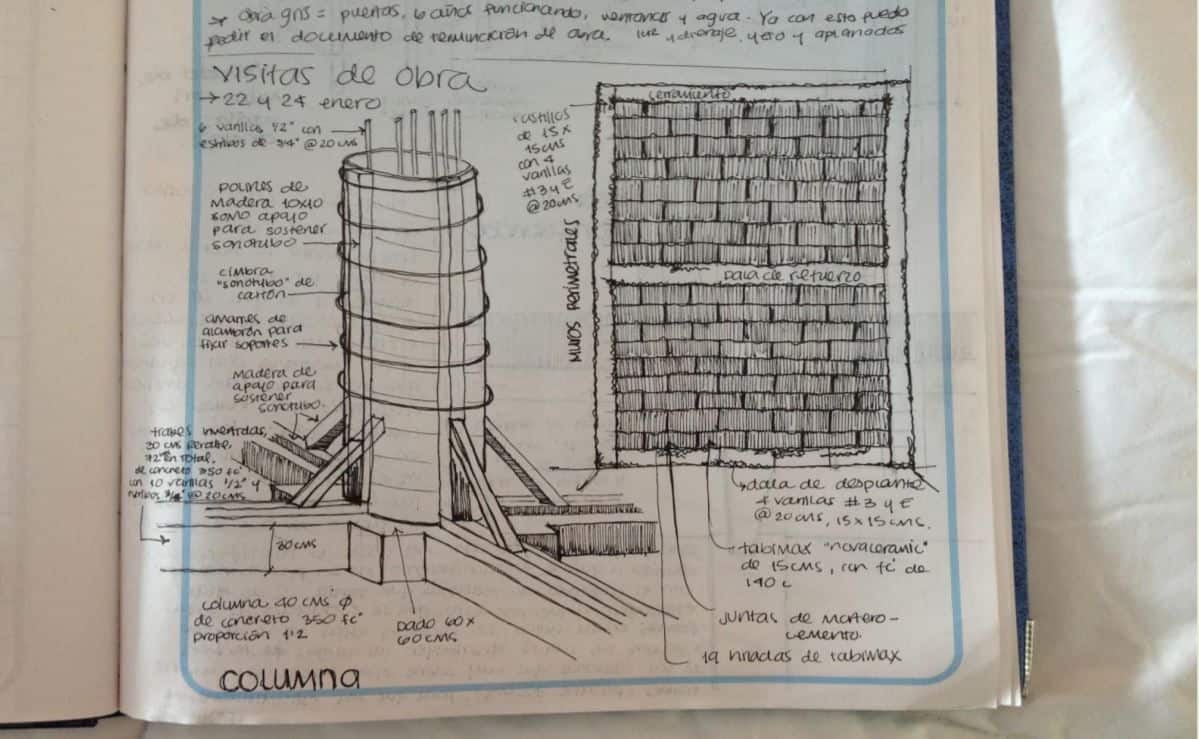 → Obra gris = puertas, 6 años funcionando, ventanas y agua. Ya con esto puedo
pedir el documento de terminación de obra. luz y drenaje, yeso y aplanados
VISITAS DE OBRA
→ 22 y 24 enero
6 varillas 1/2" con
estribos de 3/4" @ 20 cms
POLINES DE
MADERA 10X10
como apoyo
para sostener
sonotubo
CIMBRA
"sonotubo" de
cartón
amarres de
alambrón para
fijar soportes
MADERA DE
apoyo para
sostener
sonotubo.
trabes invertidas,
30 cms
en total,
de concreto 350 fc'
con 10 varillas 1/2" y
3/4" @ 20 cms
30 cms
COLUMNA 40 CMS Φ
de concreto 350 fc'
proporción 1:2
DADO 60 X
60 CMS
COLUMNA
castillos
de 15 x
15 cms
con 4
varillas
#3 y E
@ 20 cms
MUROS PERIMETRALES
cerramiento
DALA DE REFUERZO
dala de desplante
4 varillas #3 y E
@ 20 cms, 15 x 15 cms.
tabimax "novaceramic"
de 15 cms, con fc' de
140 c
juntas de mortero-
cemento.
19 hiladas de tabimax